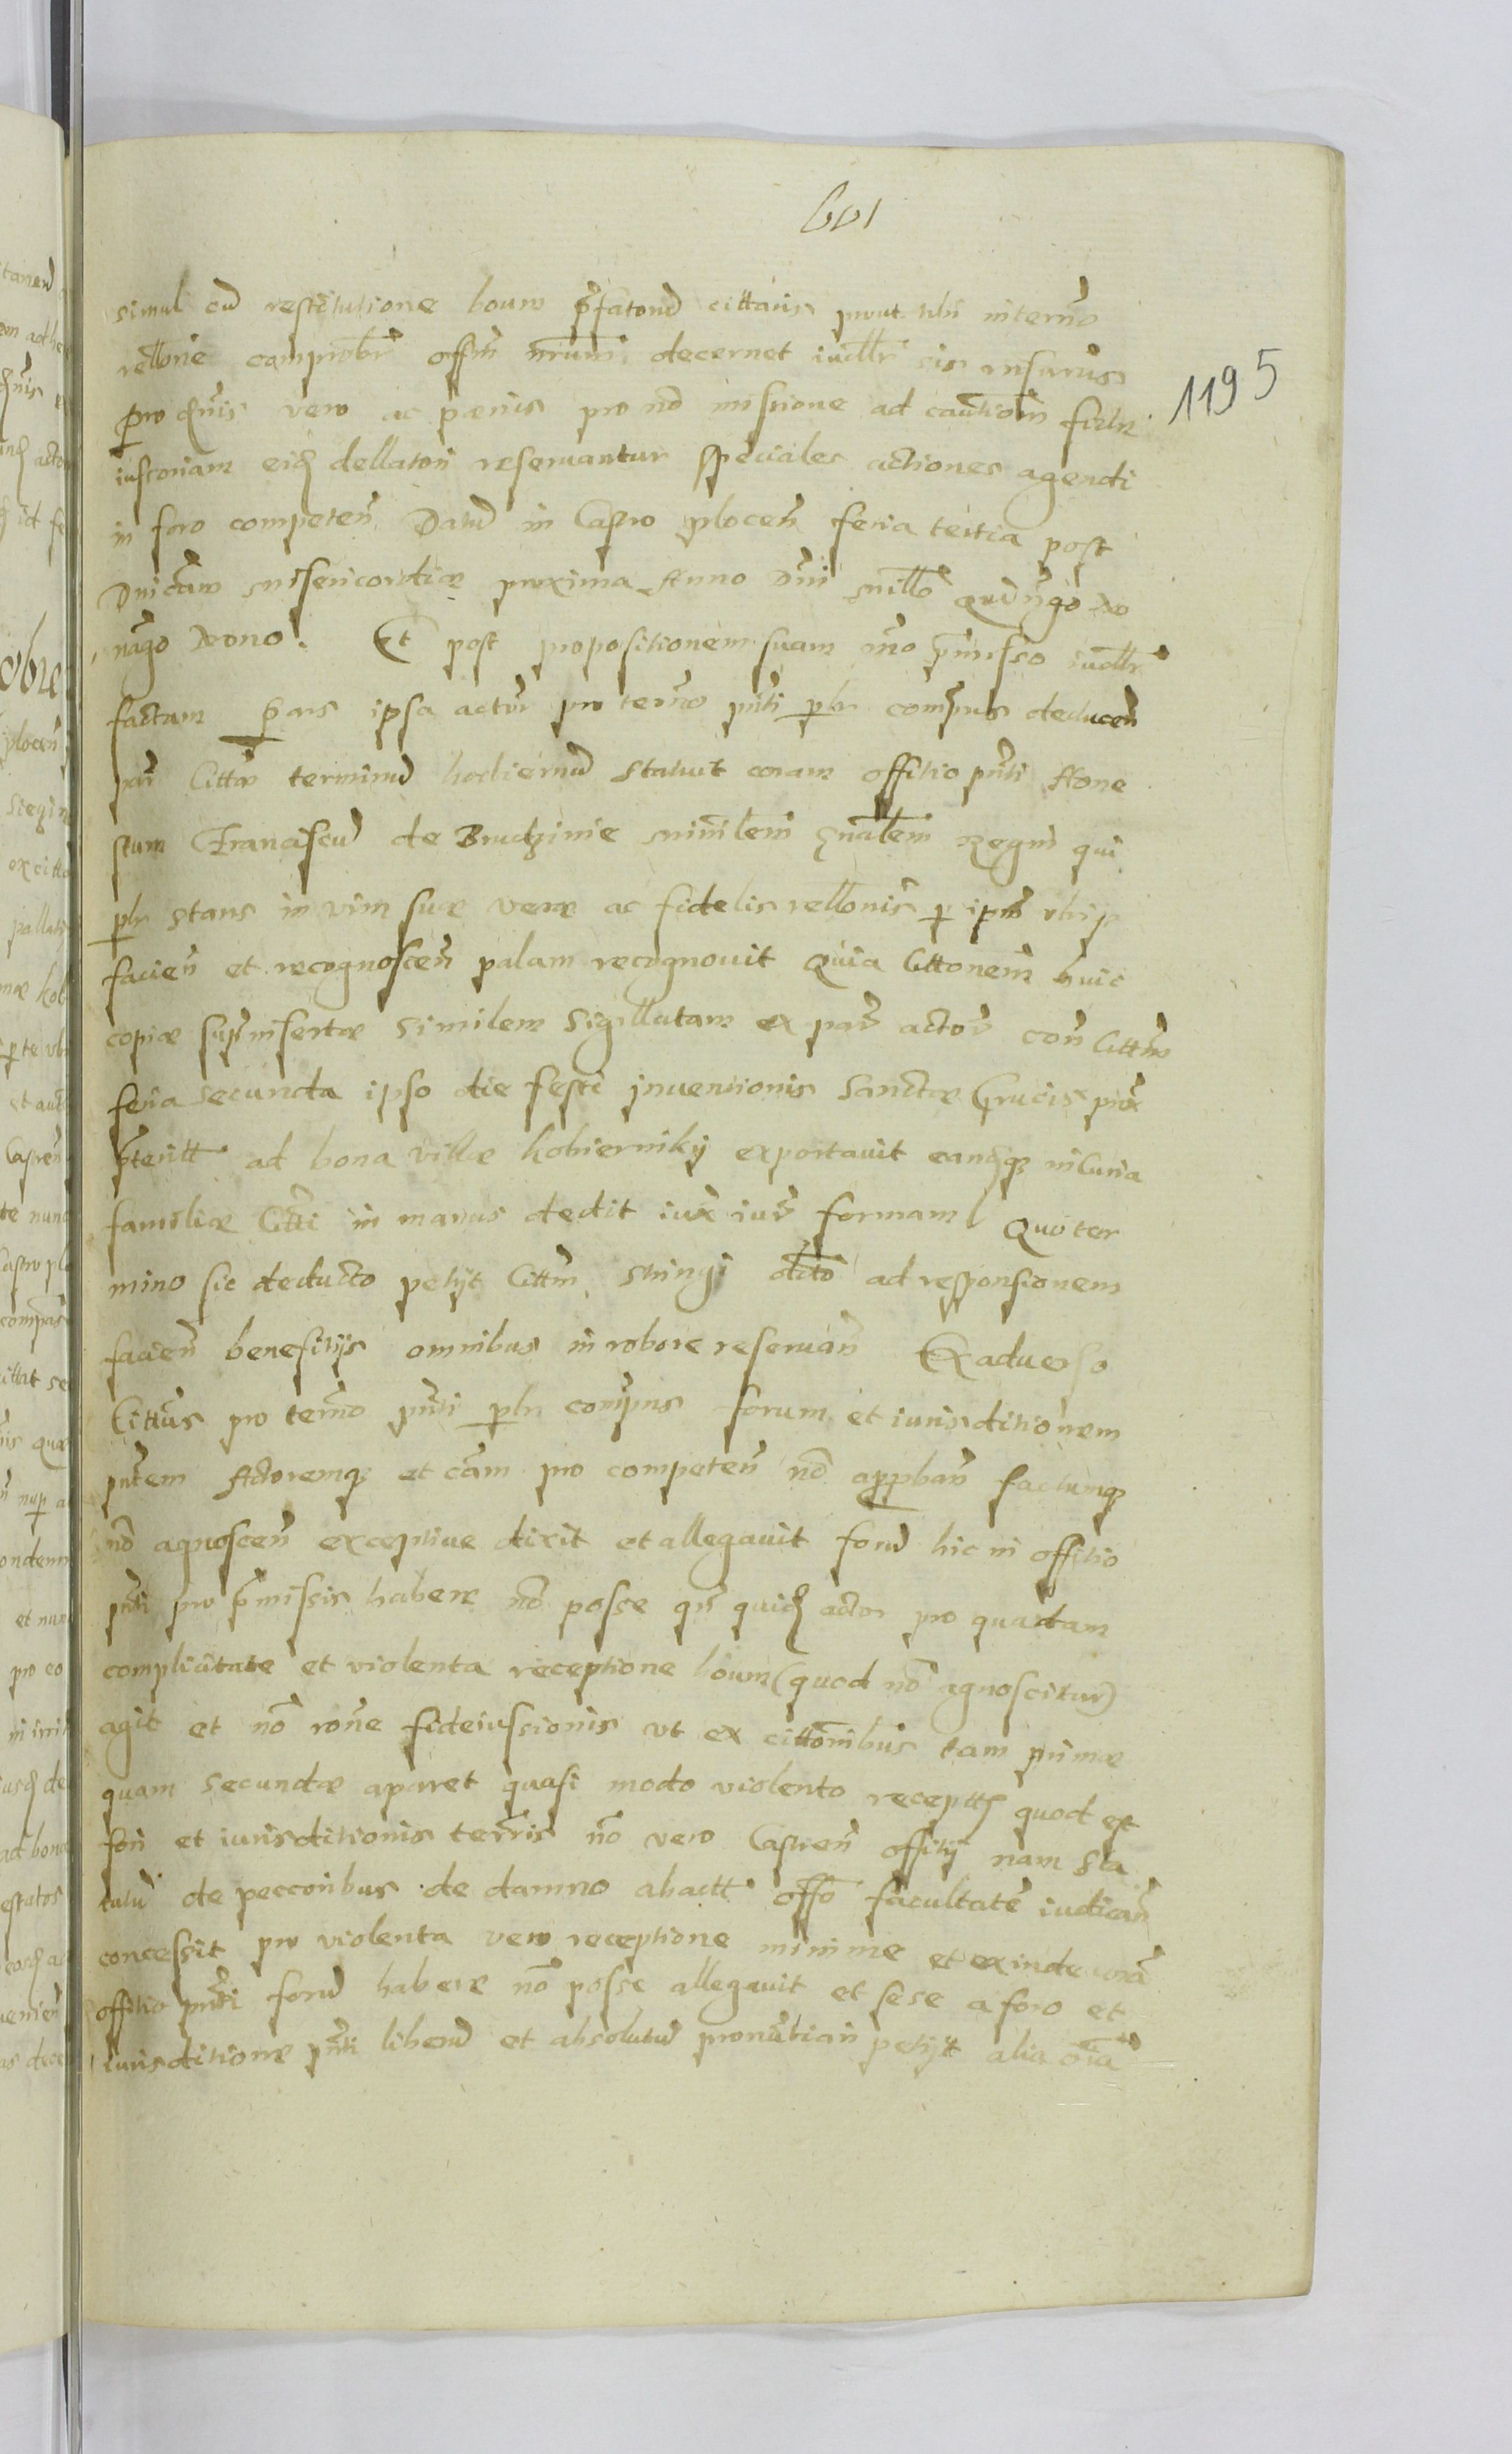 601
1195
simul cū restitutione boum p̄fatorū cittatis prout tibi in termō
rellōne comprobr̄ offm̄ nrūm decernet iudllr̄ sis visurus
pro dm̄is vero ac pœnis pro nō missione ad cautiōm fidei
iussoriam eidē dellatori reseruantur speciales actiones agendi
in foro competeñ Datū in Castro ploceñ feria tertia post
Dnicām misericordiæ proxima Anno Dm̄i millō quīngō no
nāgo nono. Et post propositionem suam mō pm̄isso iudllr̄
factam Pars ipsa actōr̄ pro termō pn̄ti plr̄ compr̄ns deduceñ
par̄ Cittæ terminū hodiernū statuit coram offitio pn̄ti Hone
stum Franciscū de Brudzinie minrlēm gnālem Regni qui
plr̄ stans in vim suæ veræ ac fidelis rellōnis p ipm̄ ibip
facieñ et recognosceñ palam recognouit Quia Cittonem huic
copiæ supr̄insertæ similem sigillatam ex par̄ actor̄ coñ Cittm̄
feria secunda ipso die festi inuentionis Sanctæ Crucis prox̄
p̄teritt ad bona villæ kobierniky exportauit eandq̄ in Curia
familiæ Citti in manus dedit iux̄ iur̄ formam Quo ter
mino sic deducto petijt Cittm̄ stringi dctō ad responsionem
facieñ benefitijs omnibus in robore reseruañ Ex aduerso
Cittus pro termō pn̄ti plr̄ compr̄ns forum et iurisditionem
pn̄tem Actoremq̄ et cām pro competeñ nō approbañ factumq̄
nō agnosceñ exceptiue dixit et allegauit forū hic in offitio
pn̄ti pro p̄missis habere nō posse qn̄ quidē actor pro quadam
complicitate et violenta receptione boum (quod nō agnoscitur)
agit et nō rōne fideiussionis vt ex cittonibus tam primæ
quam secundæ aparet quasi modo violento receptt quod est
fori et iurisditionis terrīs nō vero Castreñ offitij nam sta
tutū de peccoribus de damno abactt offō facultatē iudicañ
concessit pro violenta vero receptione minime et exinde corā
offitio pn̄ti forū habere nō posse allegauit et sese a foro et
iurisditione pn̄ti liberū et absolutū pronūtiari petijt alia oīa